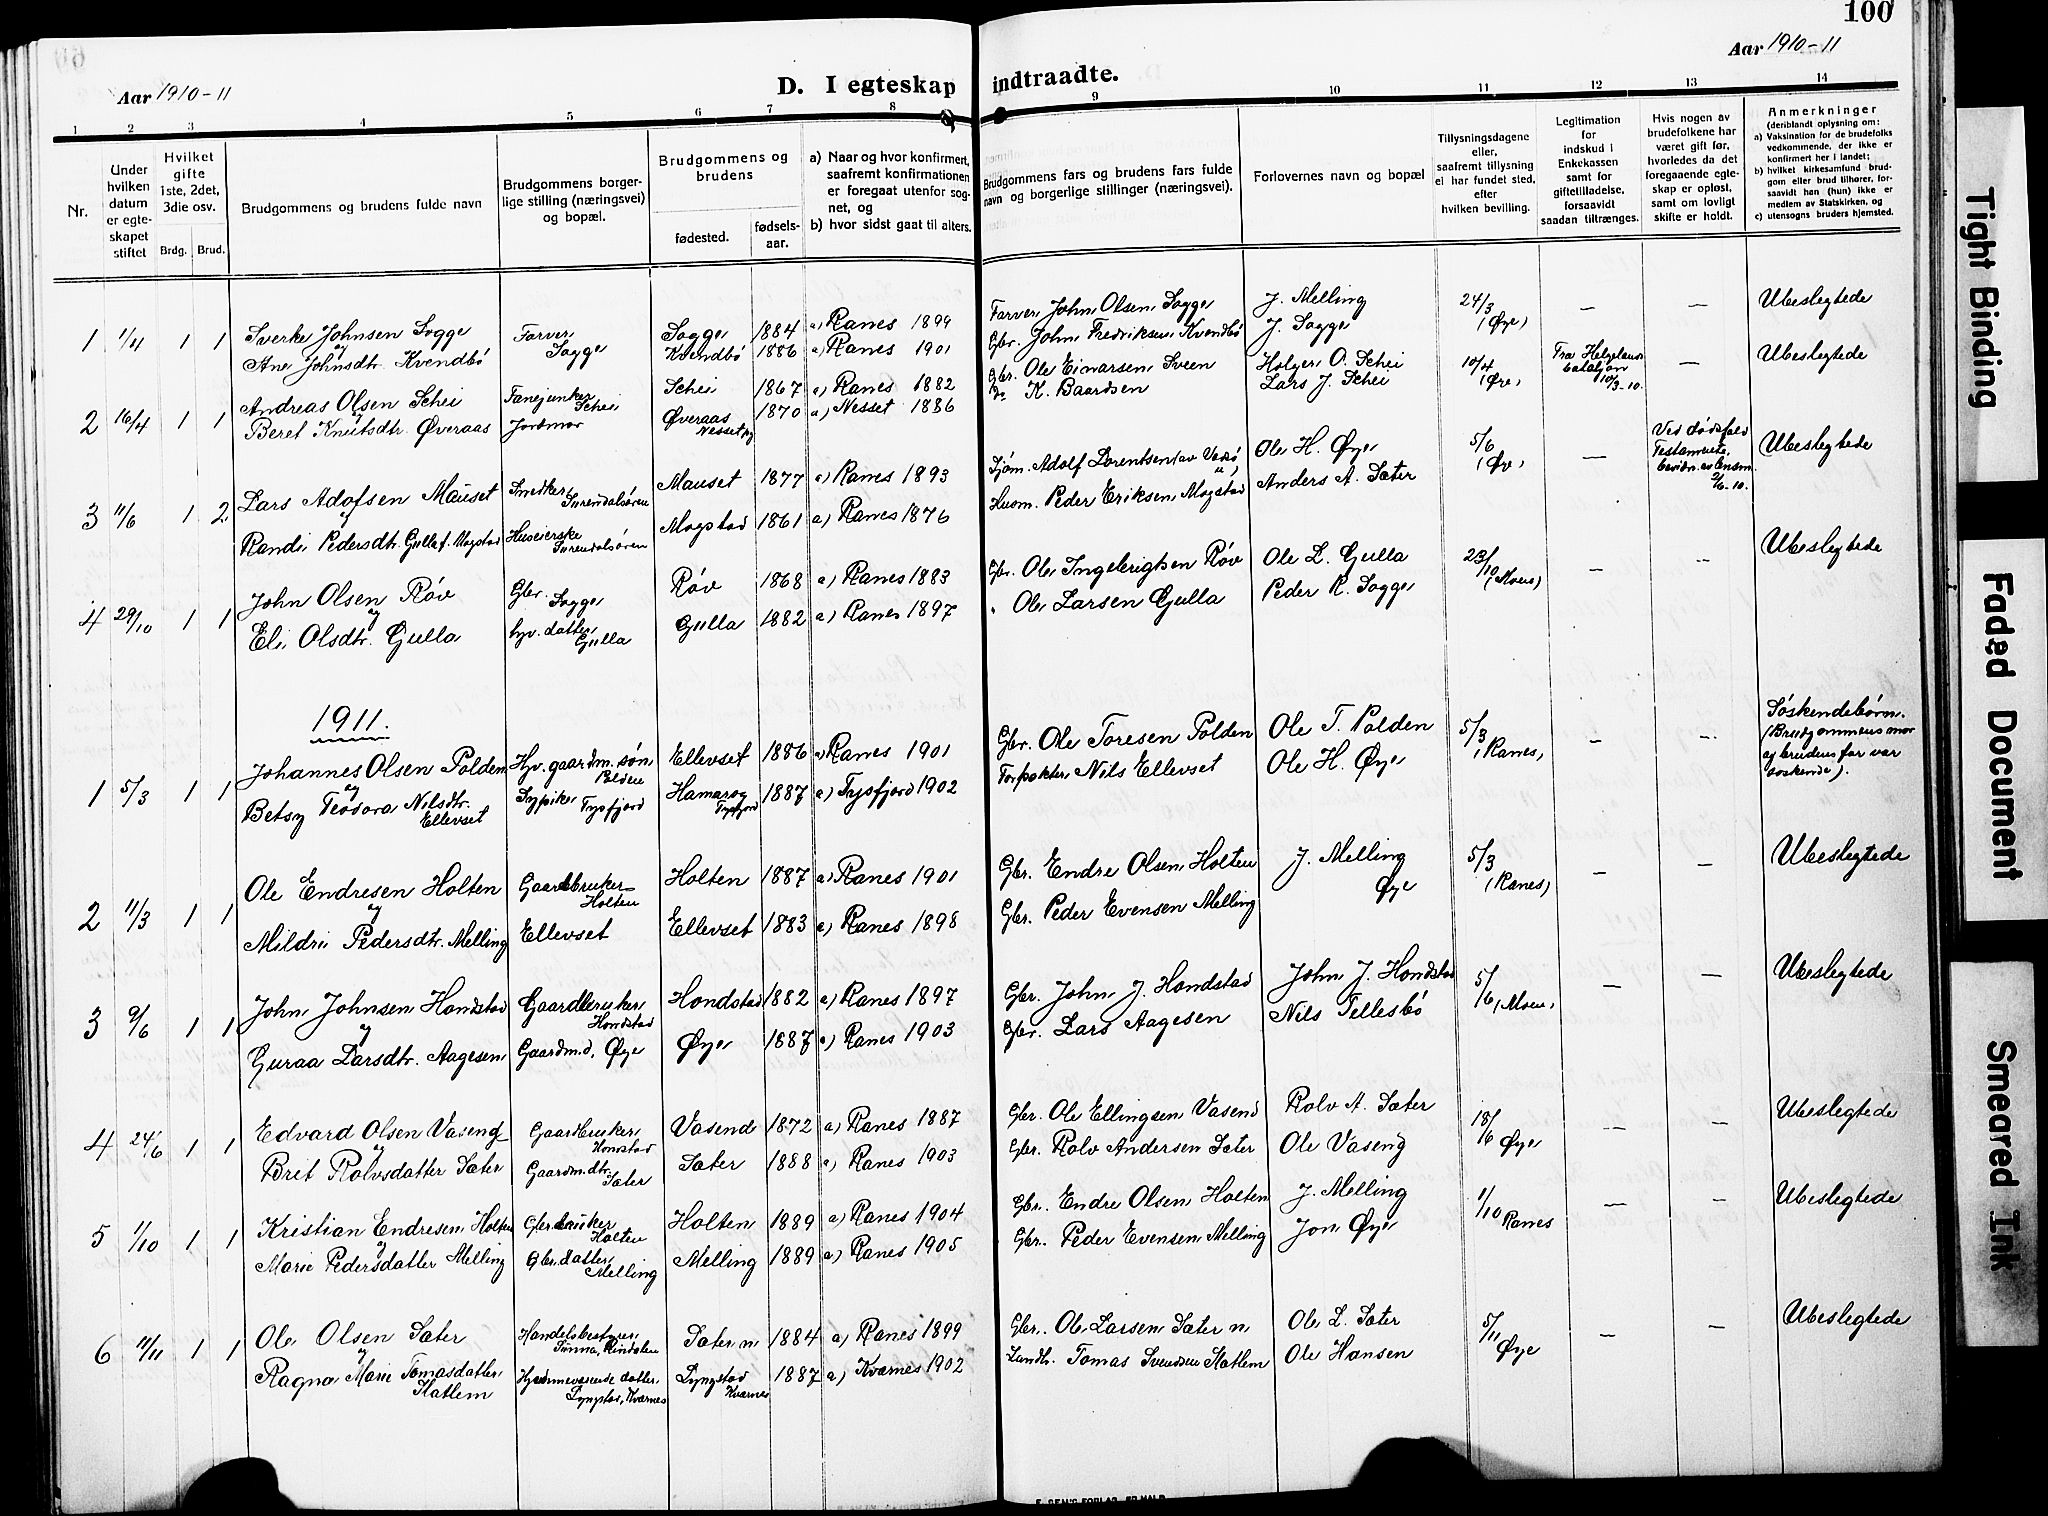 100
Aar 1910-11
D. I egteskap indtraadte.
Aar 1910-11
1 2 3 4 5 6 7 8 9 10 11 12 13 14
Nr.
Under hvilken datum er egteskapet stiftet
Hvilket gifte 1ste, 2det, 3die osv.
Brdg. Brud.
Brudgommens og brudens fulde navn
Brudgommens borgerlige stilling (næringsvei) og bopæl.
Brudgommens og brudens
fødested. fødselsaar.
a) Naar og hvor konfirmert, saafremt konfirmationen er foregaat utenfor sognet, og
b) hvor sidst gaat til alters.
Brudgommens fars og brudens fars fulde navn og borgerlige stillinger (næringsvei).
Forlovernes navn og bopæl
Tillysningsdagene eller, saafremt tillysning ei har fundet sted, efter hvilken bevilling.
Legitimation for indskud i Enkekassen samt for giftetilladelse, forsaavidt saadan tiltrænges.
Hvis nogen av brudefolkene har været gift før, hvorledes da det foregaaende egteskap er opløst, samt om lovligt skifte er holdt.
Anmerkninger
(deriblandt oplysning om:
a) Vaksination for de brudefolks vedkommende, der ikke er konfirmert her i landet;
b) hvilket kirkesamfund brudgom eller brud tilhører, forsaavidt han (hun) ikke er medlem av Statskirken, og
c) utensogns bruders hjemsted.
1 1/4 1 1 Sverke Johnsen Sogge Farver Sogge Sogge 1884 a) Ranes 1899 Farver John Olsen Sogge J. Melling 24/3 (Øye) — — Ubeslegtede
og
Ane Johnsdtr. Kvendbø Kvendbø 1886 a) Ranes 1901 Gbr. John Fredriksen Kvendbø J. Sogge
2 16/4 1 1 Andreas Olsen Schei Fanejunker Schei Schei 1867 a) Ranes 1882 Gbr. Ole Einarsen Sveen Holger O. Schei 10/4 (Øre) Fra Helgelands bataljon 10/3-10. — Ubeslegtede
Beret Knutsdtr. Øveraas Jordmor Øveraas Nesset 1870 a) Nesset 1886 Do K. Baardsen Lars J. Schei
3 11/6 1 2 Lars Adofsen Mauset Snedker Surendalsøren Mauset 1877 a) Ranes 1893 Sjøm. Adolf Lorentsen Ole H. Øye 5/6 (Øye) — Ved dødsfald Testamente 2/6-10. Ubeslegtede
og
Randi Pedersdtr. Gulla f. Mogstad Huseierske Surendalsøren Mogstad 1861 a) Ranes 1876 Husm. Peder Eriksen Mogstad Anders A. Sæter
4 29/10 1 1 John Olsen Røv Gbr. Sogge Røv 1868 a) Ranes 1883 Gbr. Ole Ingebrigtsen Røv Ole L. Gulla 23/10 (Moen) — — Ubeslegtede
og
Eli Olsdtr. Gulla hjv. datter Gulla Gulla 1882 a) Ranes 1897 " Ole Larsen Gulla Peder R. Sogge
1911.
1 5/3 1 1 Johannes Olsen Polden Hjv. gaardm. søn Polden Ellevset 1886 a) Ranes 1901 Gbr. Ole Toresen Polden Ole T. Polden 5/3 (Ranes) — — Søskendebørn. (Brudgommens mor og brudens far var søskende).
og
Betsy Teodora Nilsdtr. Ellevset Sypike Tysfjord Hamarøy Tysfjord 1887 a) Tysfjord 1902 Forpakter Nils Ellevset Ole H. Øye
2 11/3 1 1 Ole Endresen Holten Gaardbruker Holten Holten 1887 a) Ranes 1901 Gbr. Endre Olsen Holten J. Melling 5/3 (Ranes) — — Ubeslegtede
og
Mildri Pedersdtr. Melling Ellevset Ellevset 1883 a) Ranes 1898 Gbr. Peder Evensen Melling Øye
3 9/6 1 1 John Johnsen Hondstad Gaardbruker Hondstad Hondstad 1882 a) Ranes 1897 Gbr. John J. Hondstad John J. Hondstad 5/6 (Moen) — — Ubeslegtede
og
Guraa Larsdtr. Aagesen Gaardm.d. Øye Øye 1887 a) Ranes 1903 Gbr. Lars Aagesen Nils Tellesbø
4 24/6 1 1 Edvard Olsen Vaseng Gaardbruker Hondstad Vasend 1872 a) Ranes 1887 Gbr. Ole Ellingsen Vasend Rolv A. Sæter 18/6 Øye — — Ubeslegtede
og
Brit Rolvsdatter Sæter Gaardm.dtr. Sæter Sæter 1888 a) Ranes 1903 Gbr. Rolv Andersen Sæter Ole Vaseng
5 1/10 1 1 Kristian Endresen Holten Gbr.bruker Holten Holten 1889 a) Ranes 1904 Gbr. Endre Olsen Holten J. Melling 1/10 Ranes — — Ubeslegtede
og
Marie Pedersdatter Melling Gbr.datter Melling Melling 1889 a) Ranes 1905 Gbr. Peder Evensen Melling Jon Øye
6 11/11 1 1 Ole Olsen Sæter Handelsbestyrer Sunna, Rindalen Sæter n. 1884 a) Ranes 1899 Gbr. Ole Larsen Sæter n. Ole L. Sæter 5/11 Øye — — Ubeslegtede
og
Ragna Marie Tomasdatter Slatlem Hjemmeværende datter, Lyngstad, Kvernes Lyngstad Kvernes 1887 a) Kvernes 1902 Landh. Tomas Svendsen Slatlem Ole Hansen
Tight Binding
Faded Document
Smeared Ink